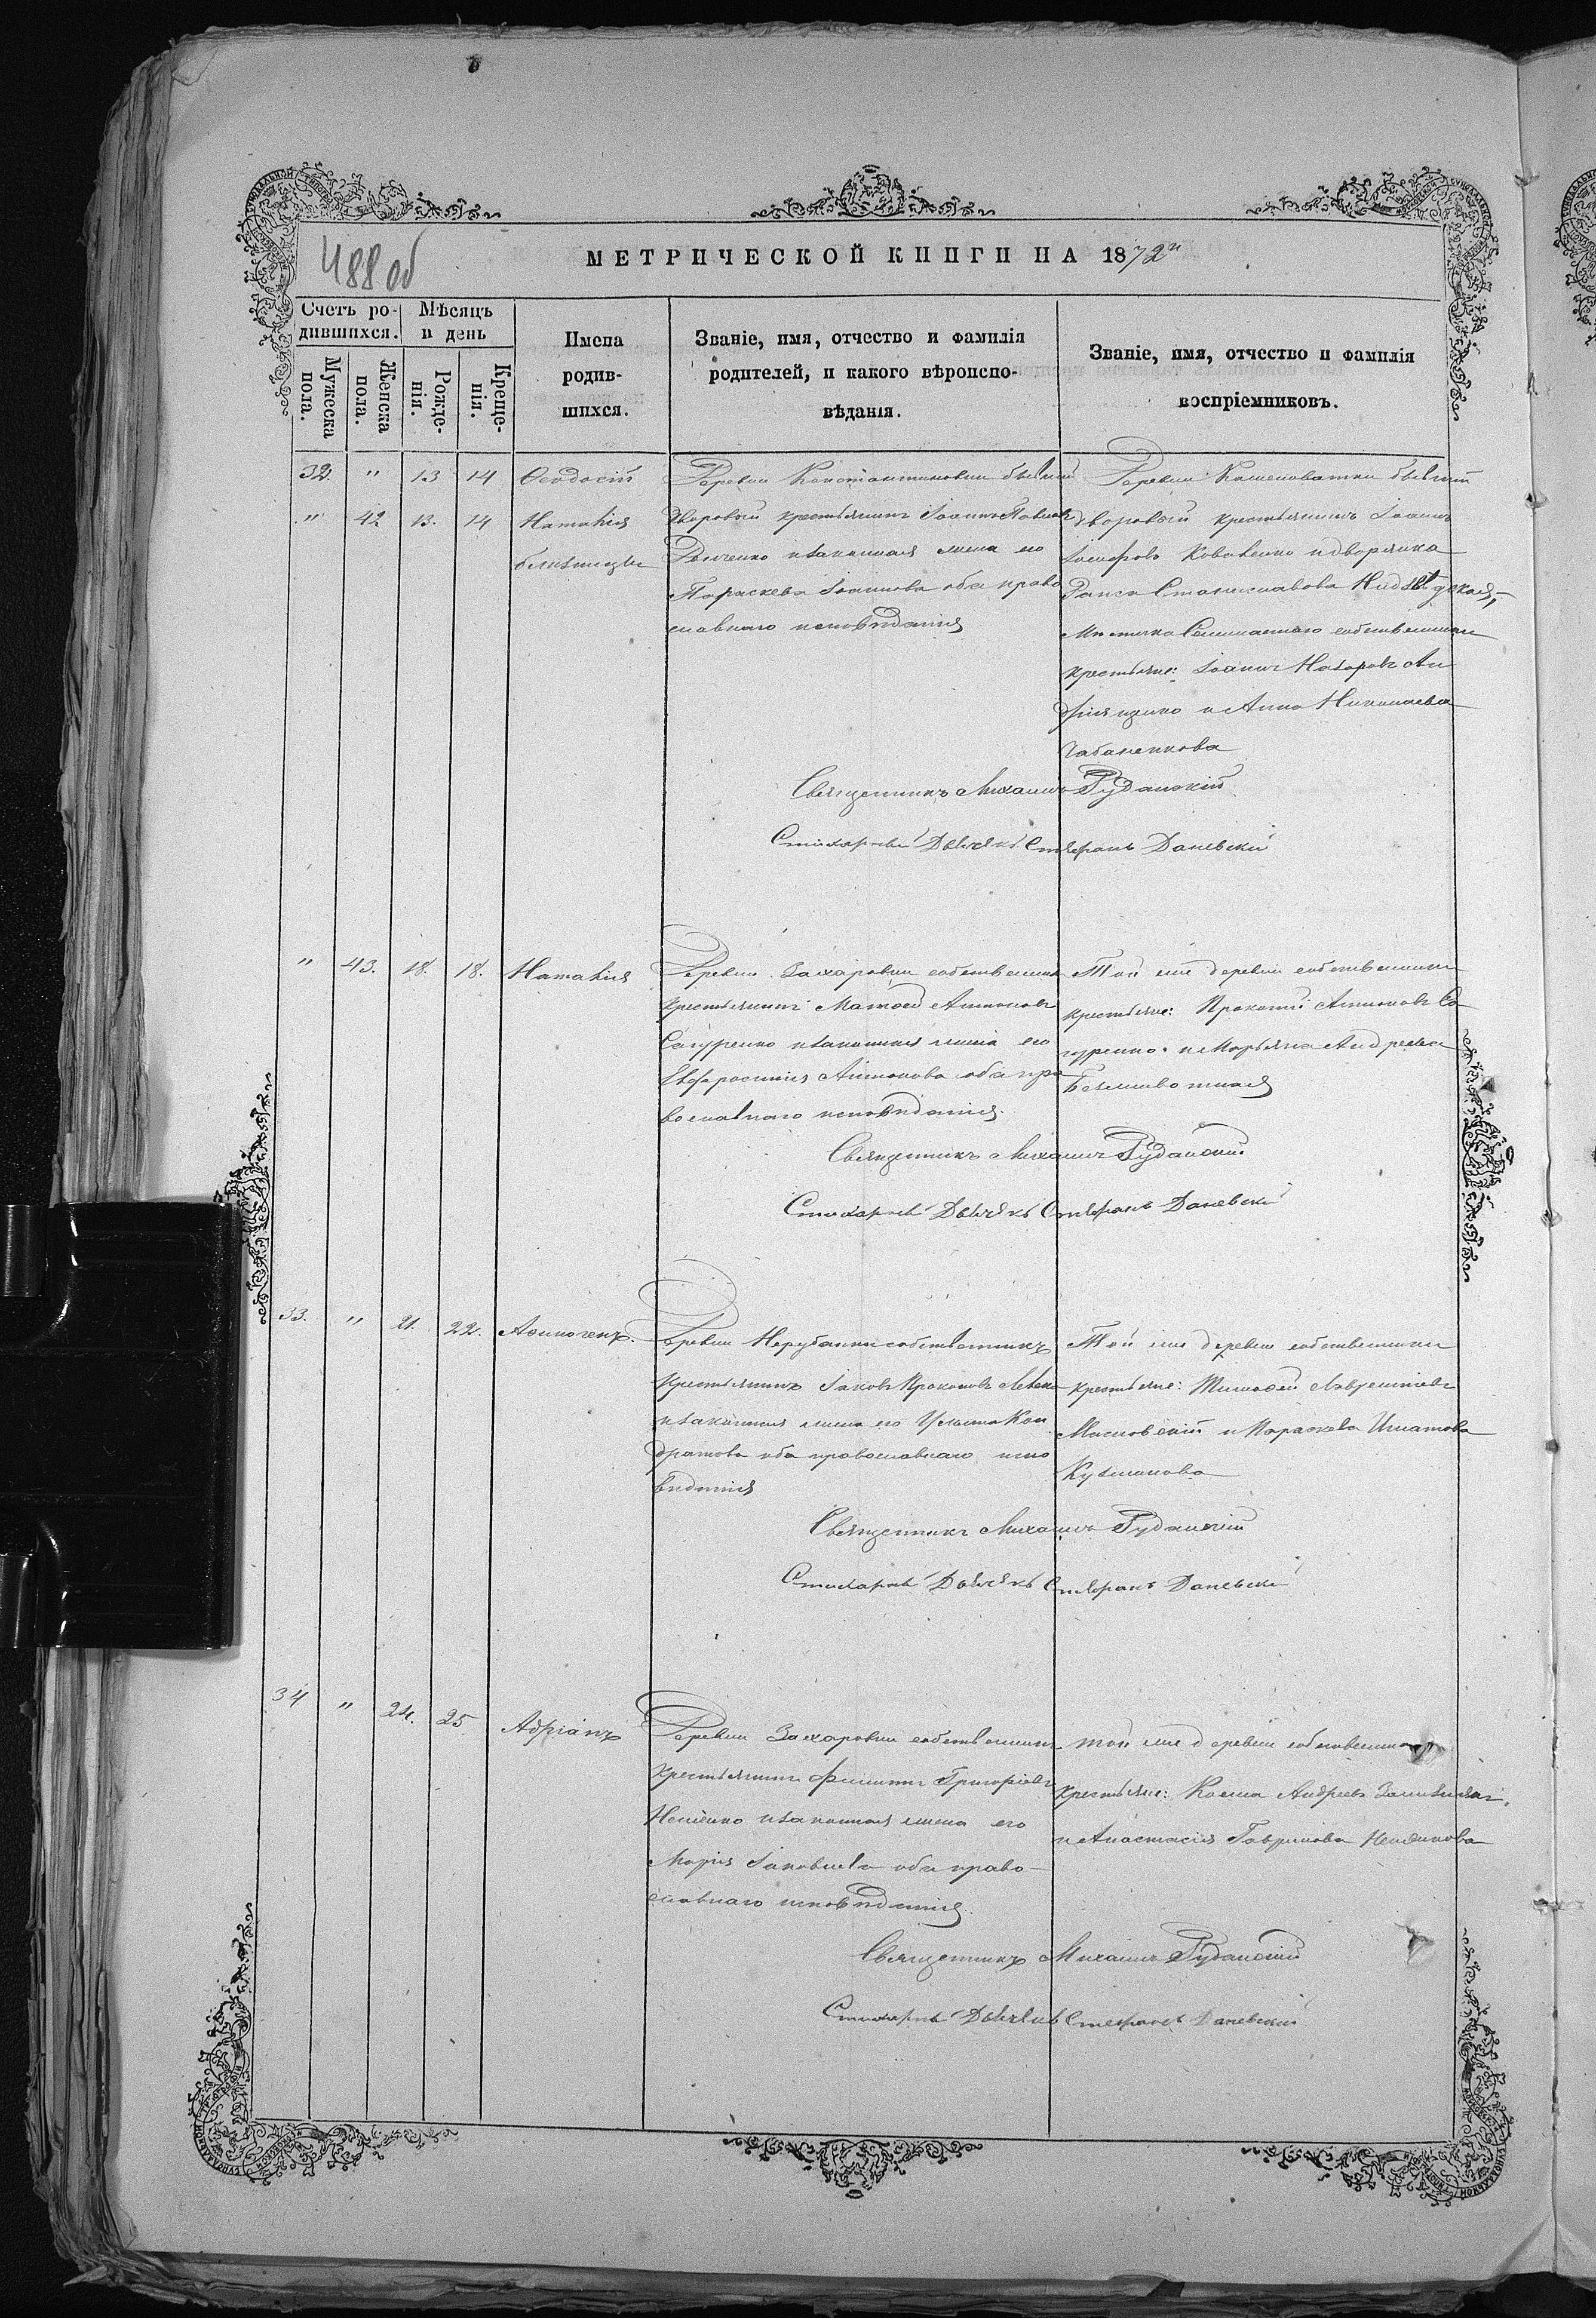 488 об
МЕТРИЧЕСКОЙ КНИГИ НА 1872й
Счетъ ро-
дившихся.
Мѣсяцъ
и день
Мужеска
пола.
Женска
пола.
Рожде-
нія.
Креще-
нія.
Имена
родив-
шихся.
Званіе, имя, отчество и фамилія
родителей, и какого вѣроиспо-
вѣданія.
Званіе, имя, отчество и фамилія
воспріемниковъ.
32. " 13 14 Ѳеодосій
" 42 13. 14 Наталія
близнецы
Деревни Константиновки бывшій
дворовый крестьянинъ Іоаннъ Павловъ
и законная жена его
Параскева Іоаннова оба право
славнаго исповѣданія
Деревни Кошеноватки бывшій
дворовый крестьянинъ Іоаннъ
Іосифовъ Коваленко и дворянка
Станиславова
мѣстечка собственники
крестьяне: Іоаннъ Назаровъ Ан
дріященко и Анна Николаева
Чабаненкова
Священникъ Михаилъ Руданскій
Стихарный Дьячекъ Стефанъ Даневскій
" 43. 18. 18. Наталія
Деревни Захаровки собственникъ
крестьянинъ Матѳей Антоновъ
Сагуренко и законная жена его
Евфросинія Антонова оба пра
вославнаго исповѣданія.
Той же деревни собственники
крестьяне: Прокопій Антоновъ Са
гуренко и Марьяна Андреева
Безживотная
Священникъ Михаилъ Руданскій
Стихарный Дьячекъ Стефанъ Даневскій
33. " 21. 22. Аѳиногенъ.
Деревни Нерубайки собственникъ
крестьянинъ Іаковъ Прокоповъ
и законная жена его Ульяна Кон
дратова оба православнаго испо
вѣданія
Той же деревни собственники
крестьяне: Тимоѳей Лаврентіевъ
Маньовскій и Параскева Игнатова
Кузьминова
Священникъ Михаилъ Руданскій
Стихарный Дьячекъ Стефанъ Даневскій
34 " 24. 25. Адріанъ
Деревни Захаровки собственникъ
крестьянинъ Филиппъ Григоріевъ
и законная жена его
Марія Іаковлева оба право-
славнаго исповѣданія.
той же деревни собственники
крестьяне: Косма Андреевъ
и Анастасія Гаврилова
Священникъ Михаилъ Руданскій
Стихарный Дьячекъ Стефанъ Даневскій